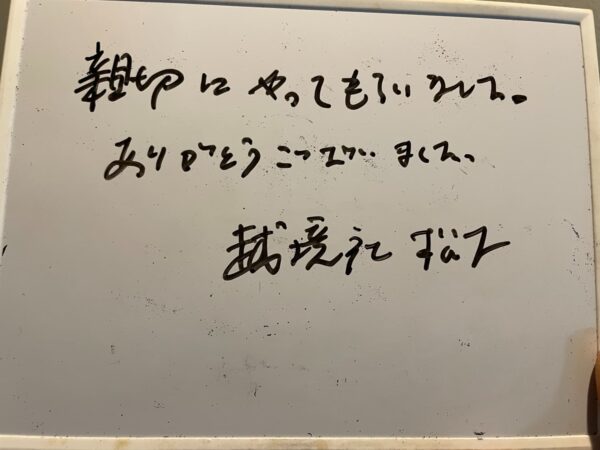 親切にやってもらいました。
ありがとうございました。
越境社